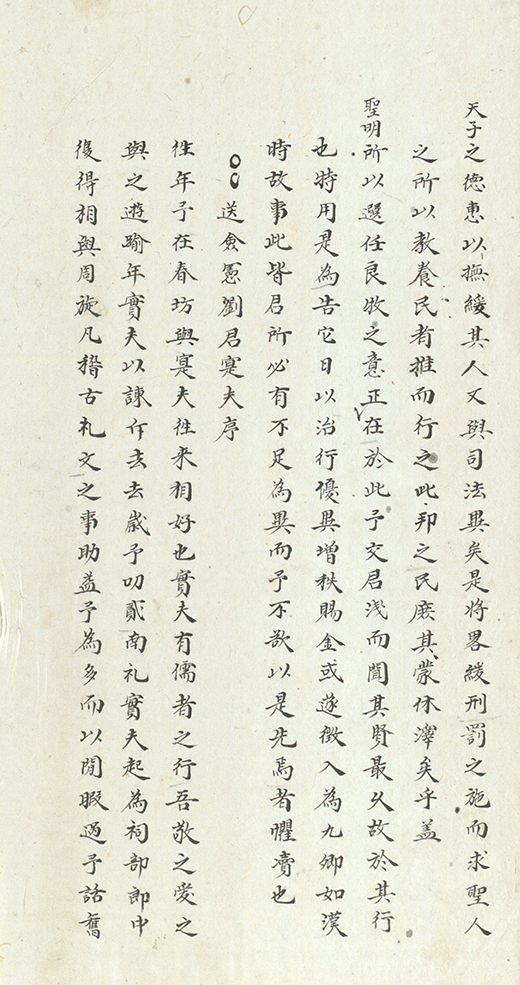 天子之德惠以撫綏其人又與司法異矣是將畧綏刑罰之施而求聖人
之所以教養民者推而行之此邦之民庶其蒙休澤矣乎蓋
聖明所以選任良牧之意正在於此予交君浅而聞其賢最久故於其行
也特用是為告它日以治行優異增秩賜金或遂徴入為九卿如漢
時故事此皆君所必有不足為異而予不欲以是先焉者懼凟也
送僉憲劉君寔夫序
往年予在春坊與寔夫徃来相好也實夫有儒者之行吾敬之愛之
與之遊踰年實夫以諫仵去去歳予叨貳南礼實夫起為祠部郎中
復得相與周旋凡稽古礼文之事助益予為多而以閒暇過予話舊